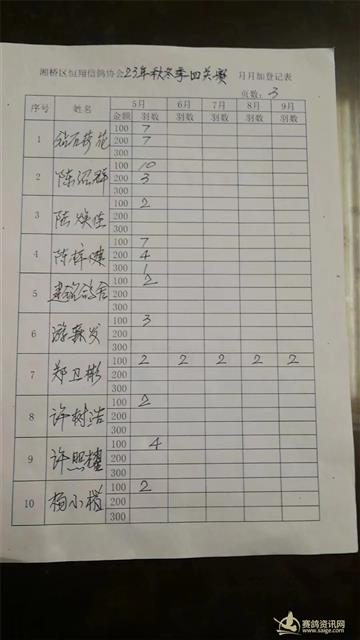 湘桥区恒翔信鸽协会23年秋冬季四关赛 月月加登记表
页数: 3
序号 姓名 5月 6月 7月 8月 9月
金额 羽数 羽数 羽数 羽数 羽数
1 钻石荷花 100 7
200 7
300
2 陈沼群 100 10
200 3
300
3 陆焕佳 100 2
200
300
4 100 7
200 4
300 1
5 100 2
200
300
6 100 3
200
300
7 郑卫彬 100 2 2 2 2 2
200
300
8 许树浩 100 2
200
300
9 许照耀 100 4
200
300
10 100 2
200
300
赛鸽资讯网
www.saige.com